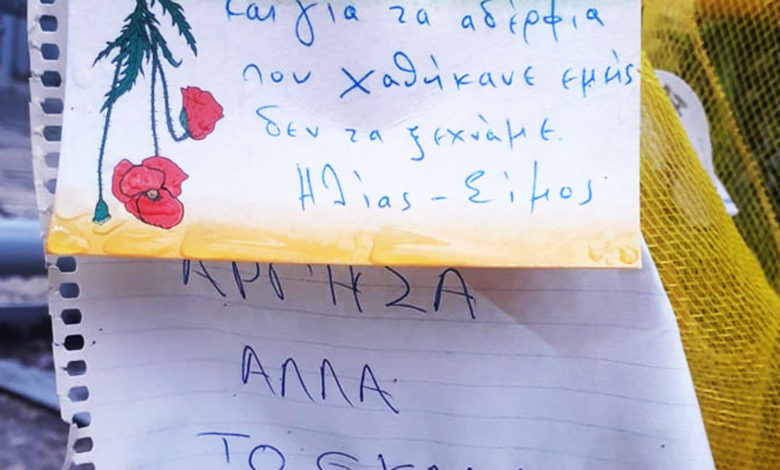 και για τα αδέρφια
που χαθήκανε εμείς
δεν τα ξεχνάμε.
Ηλίας - Σίμος
ΑΡΓΗΣΑ
ΑΛΛΑ
ΤΟ